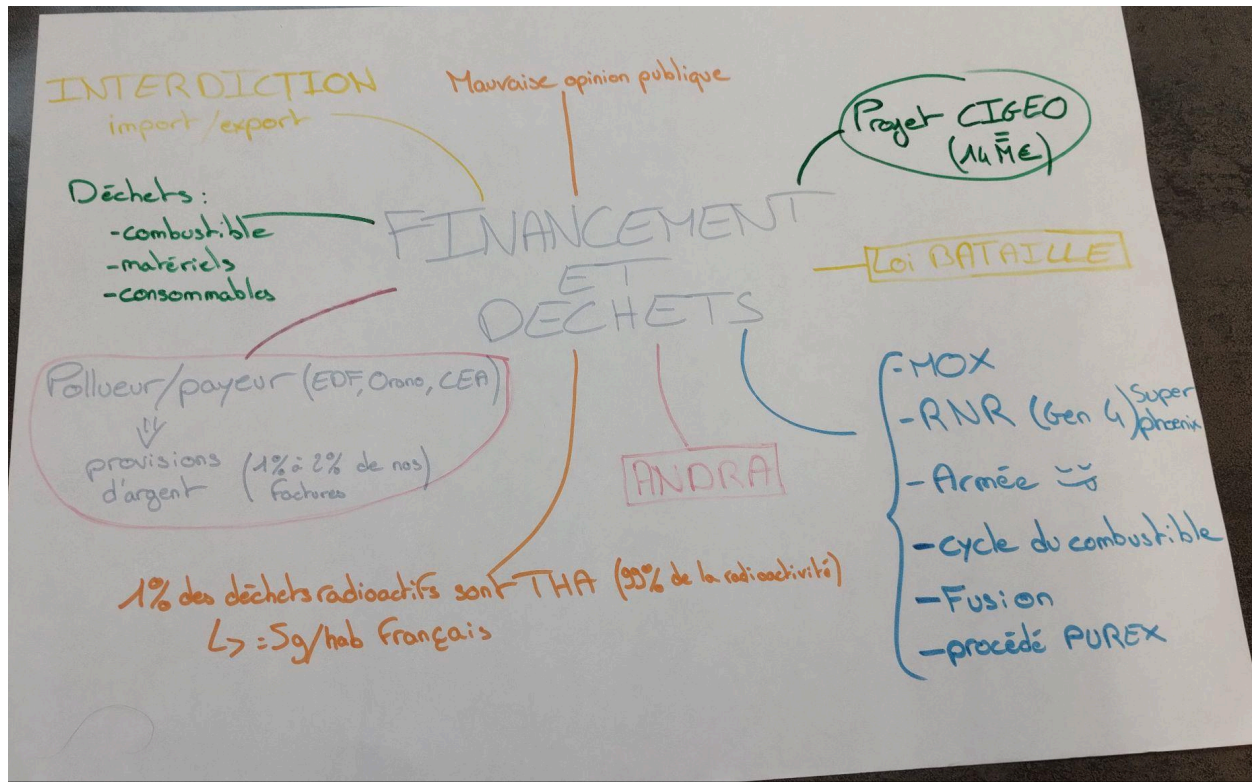 INTERDICTION
import/export
Mauvaise opinion publique
Projet CIGEO
(14 M€)
Déchets :
-combustible
-matériels
-consommables
FINANCEMENT
ET
DECHETS
Loi BATAILLE
Pollueur/payeur (EDF, Orano, CEA)
provisions (1% à 2% de nos)
d'argent factures
ANDRA
-MOX
-RNR (Gen 4) Super
phoenix
-Armée
-cycle du combustible
-Fusion
-procédé PUREX
1% des déchets radioactifs sont THA (99% de la radioactivité)
↳ = 5g/hab Français